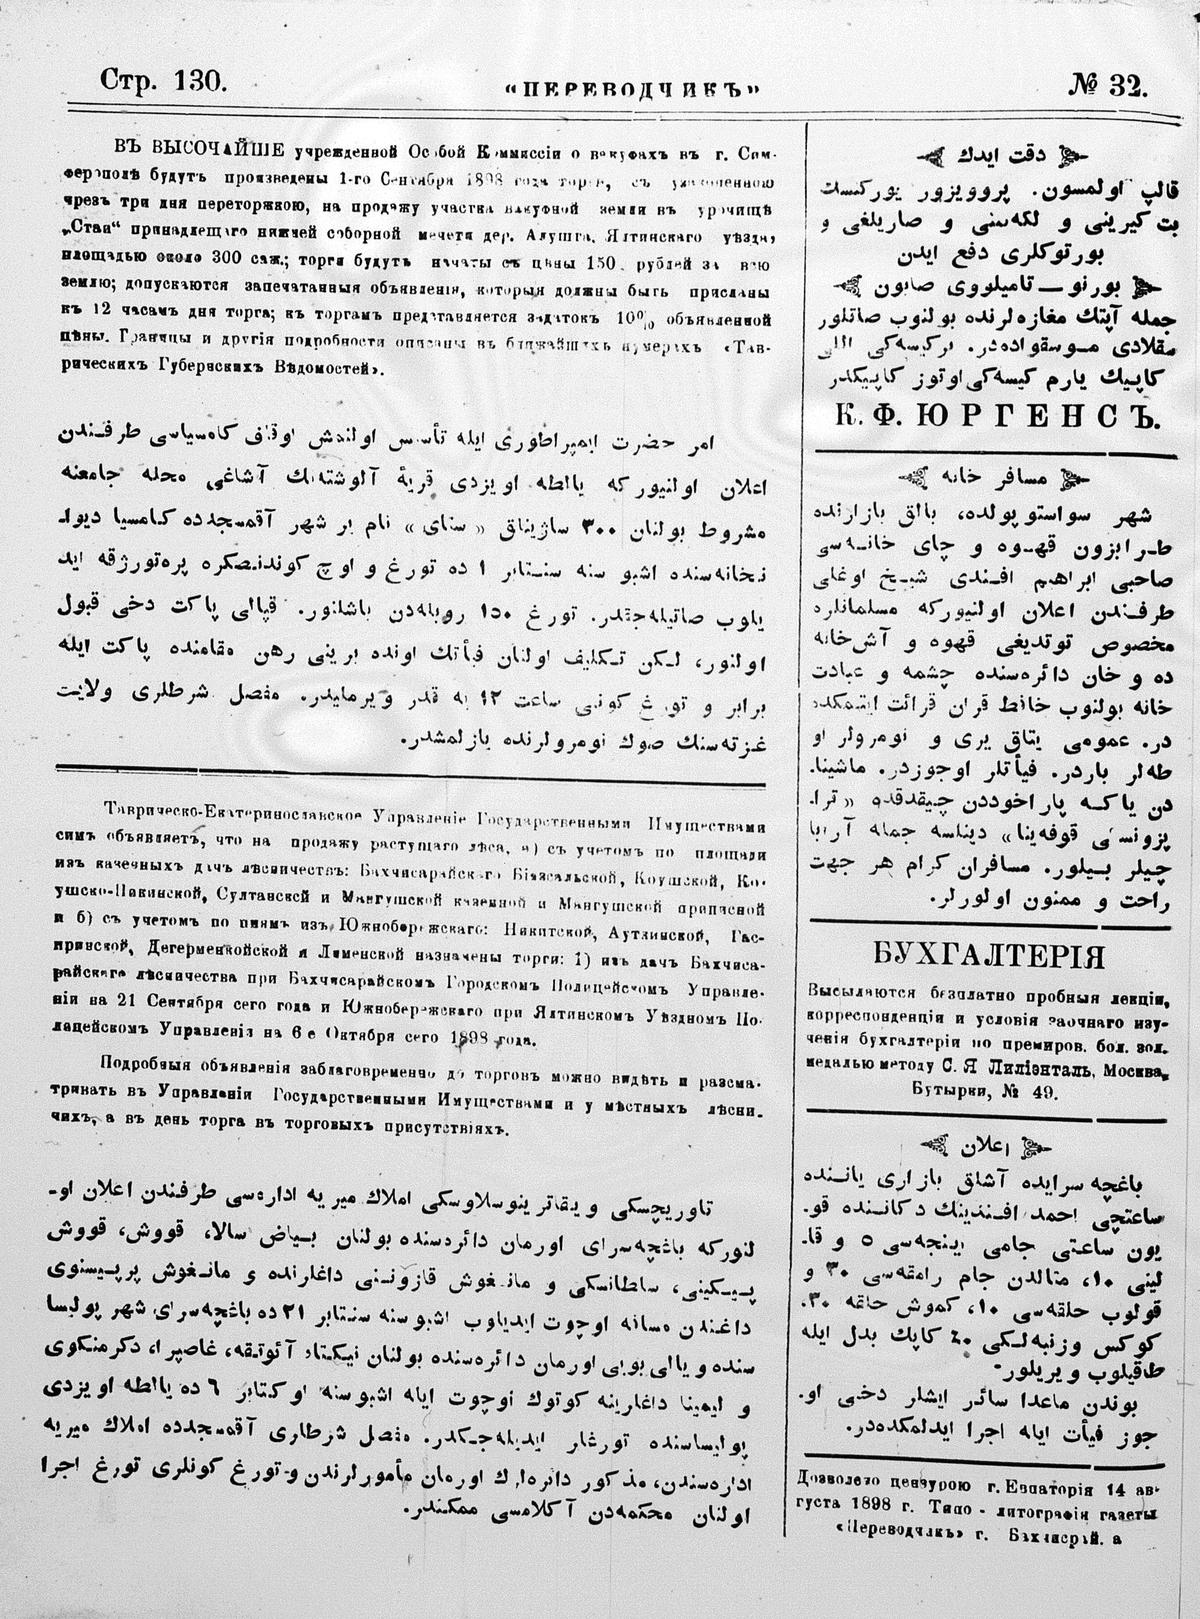 Стр. 130.
«ПЕРЕВОДЧИКЪ»
№ 32.
ВЪ ВЫСОЧАЙШЕ учрежденной Особой Коммиссіи о вакуфахъ въ г. Сим-
ферополѣ будутъ произведены 1-го Сентября 1898 года торги, съ узаконенною
чрезъ три дня переторжкою, на продажу участка вакуфной земли въ урочищѣ
„Стаи“ принадлещаго нижней соборной мечети дер. Алушта, Ялтинскаго уѣзда,
площадью около 300 саж.; торги будутъ начаты съ цѣны 150 рублей за всю
землю; допускаются запечатанныя объявленія, которыя должны быть присланы
къ 12 часамъ дня торга; къ торгамъ представляется задатокъ 10% объявленной
цѣны. Границы и другія подробности описаны въ ближайшихъ нумерахъ «Тав-
рическихъ Губернскихъ Вѣдомостей».
امر حضرت ایمپراطوری ایله تأسس اولنمش اوقاف کامسیاسی طرفـندن
اعلان اولنیورکه یالطه اویزدی قریۀ آلوشتەنك آشاغی محله جامعنه
مشروط بولنان ۳۰۰ ساژیناق «ستای» نام بر شهر آقمسجدده کامسیا دیوا-
نخانەسنده اشبو سنه سنتابر ۱ ده تورغ و اوچ کوندنصکره پرەتورژقه ایدـ
یلوب صاتیلەجقدر. تورغ ۱۵۰ روبلەدن باشلنور. قپالی پاکت دخی قبول
اولنور، لـکن تـکلیف اولنان فیأتك اونده برینی رهن مقامنده پاکت ایله
برابر و تورغ کونی ساعت ۱۲ یه قدر ویرمایدر. مفصل شرطلری ولایت
غزتەسنك صوك نومرولرنده یازلمشدر.
Таврическо-Екатеринославское Управленіе Государственными Имуществами
симъ объявляетъ, что на продажу растущаго лѣса, а) съ учетомъ по площади
изъ казенныхъ дачъ лѣсничествъ: Бахчисарайскаго Біасальской, Коушской, Ко-
ушско-Пикинской, Султанской и Мангушской казенной и Мангушской приписной
и б) съ учетомъ по пнямъ изъ Южнобережскаго: Никитской, Аутлинской, Гас-
принской, Дегерменкойской и Лименской назначены торги: 1) изъ дачъ Бахчиса-
райскаго лѣсничества при Бахчисарайскомъ Городскомъ Полицейскомъ Управле-
ніи на 21 Сентября сего года и Южнобережскаго при Ялтинскомъ Уѣздномъ По-
лицейскомъ Управленіи на 6 е Октября сего 1898 года.
Подробныя объявленія заблаговременно до торговъ можно видѣть и разсма-
тривать въ Управленіи Государственными Имуществами и у мѣстныхъ лѣсни-
чихъ, а въ день торга въ торговыхъ присутствіяхъ.
تاوریچسکی و یقاترینوسلاوسکی املاك میریه ادارەسی طرفندن اعلان او-
لنورکه باغچەسرای اورمان دائرەسنده بولنان بـیاض سالا، قووش، قووش
پیـکینی، سلطانسکی و مانغوش قازوننی داغلرنده و مانـغوش پریپیسنوی
داغـندن مسانه اوچوت ایدیلوب اشبوسنه سنتابر ۲۱ ده باغچەسرای شهر پولیسا
سنده و یالی بویی اورمان دائرەسنده بولنان نیکیتا، آئوتقه، غاصپرا، دکرمنکوی
و لیمینا داغلرینه کوتوك اوچوت ایله اشبوسنه اوکتابر ٦ ده یالطه اویزدی
پولیساسنده تورغلر ایدیلەجکدر. مفصل شرطلری آقمسجدده املاك میریه
ادارەسندن، مذکور دائرەلرك اورمان مأمورلرندن و تورغ کونلری تورغ اجرا
اولنان محکمەدن آکلامسی ممکندر.
دقت ایدك
قالپ اولمسون. پروویزور یورکنسك
بت کیرینی و لکەسنی و صاریلغی و
بورتوکلری دفع ایدن
بورنو – تامیلووی صابون
جمله آپتك مغازەلرنده بولنوب صاتلور
سقلادی مـوسقوادەدر. برکیسەکی اللی
کاپیك یارم کیسەکی اوتوز کاپیکدر
К. Ф. ЮРГЕНСЪ.
مسافر خانه
شهر سواستوپولده، بالق بازارنده
طـرابزون قهـوه و چای خانـەسی
صاحبی ابراهیم افـندی شیـخ اوغلی
طرفـندن اعلان اولنیورکه مسلمانلره
مخصوص توتدیغی قهوه و آش خانه
ده و خان دائرەسنده چشمه و عبادت
خانه بولنوب حافظ قران قرائت ایتمکده
در. عمومی یتاق یری و نومرولر او
طەلر باردر. فیأتلر اوجوزدر. ماشینا-
دن یاکـه پاراخوددن چیقدقده «ترا-
پزونسکی قوفەینا» دینلسه جمله آرابا
چیلر بـیلور. مسافران کرام هر جهت
راحت و ممنون اولورلر.
БУХГАЛТЕРІЯ
Высылаются безплатно пробныя лекціи,
корреспонденціи и условія заочнаго изу-
ченія бухгалтеріи по премиров. бол. зол.
медалью методу С. Я Лиліэнталь, Москва,
Бутырки, № 49.
اعلان
باغچه سرایده آشلق بازاری یاننده
ساعتچی احمد افـندینك دکانـنده قو-
یون ساعتی جامی اینجەسی ۵ و قا-
لینی ۱۰، متالدن جام رامقەسی ۳۰ و
قولوب حلقەسی ۱۰، کموش حلقه ۳۰.
کوکس وزنبەلـکی ٤٠ کاپك بدل ایله
طاقیلوب ویریلور-
بوندن ماعدا سائر ایشلر دخی او-
جوز فیأت ایله اجرا ایدلمکدەدر.
Дозволено цензурою г. Евпаторія 14 ав-
густа 1898 г. Типо - литографія газеты
«Переводчикъ» г. Бахчисрай. а